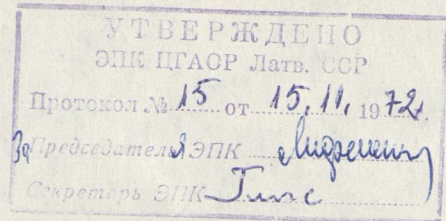 УТВЕРЖДЕНО
ЭПК ЦГАОР Латв. ССР
Протокол № 15 от 15.11.1972г.
За Председателя ЭПК
Секретарь ЭПК